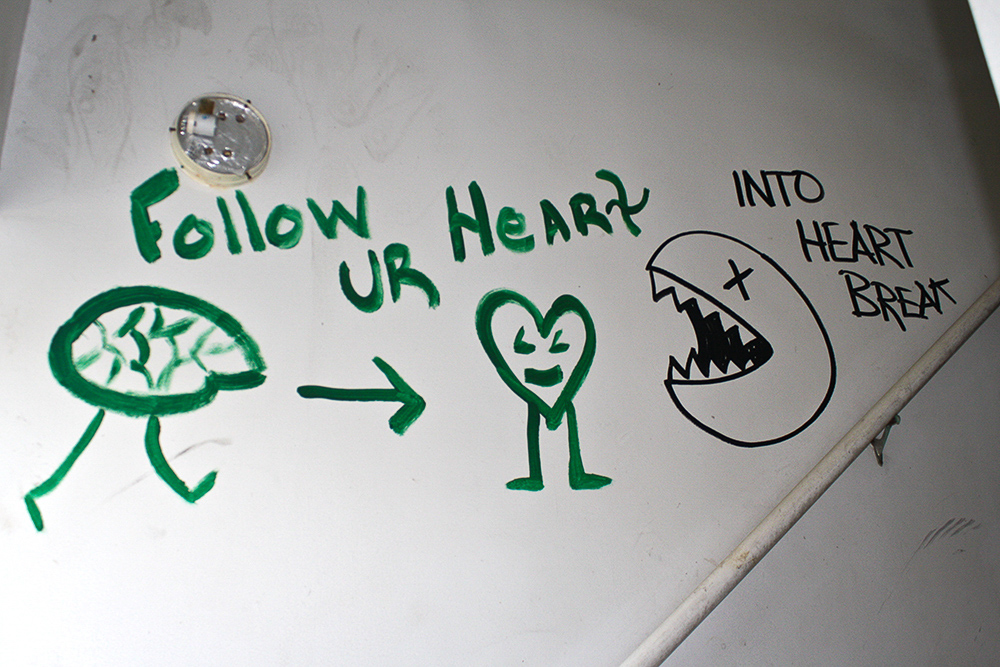 Follow
UR
HeARt
INTO
HEART
BREAK